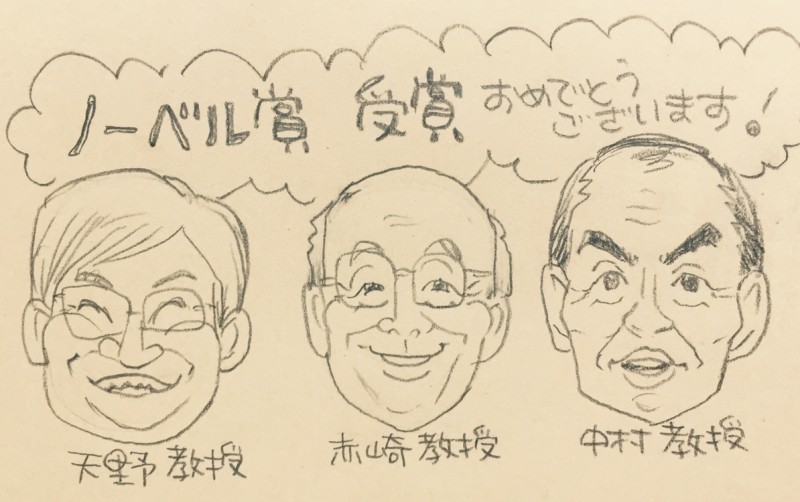 ノーベル賞 受賞 おめでとう
ございます!
天野教授 赤崎教授 中村教授